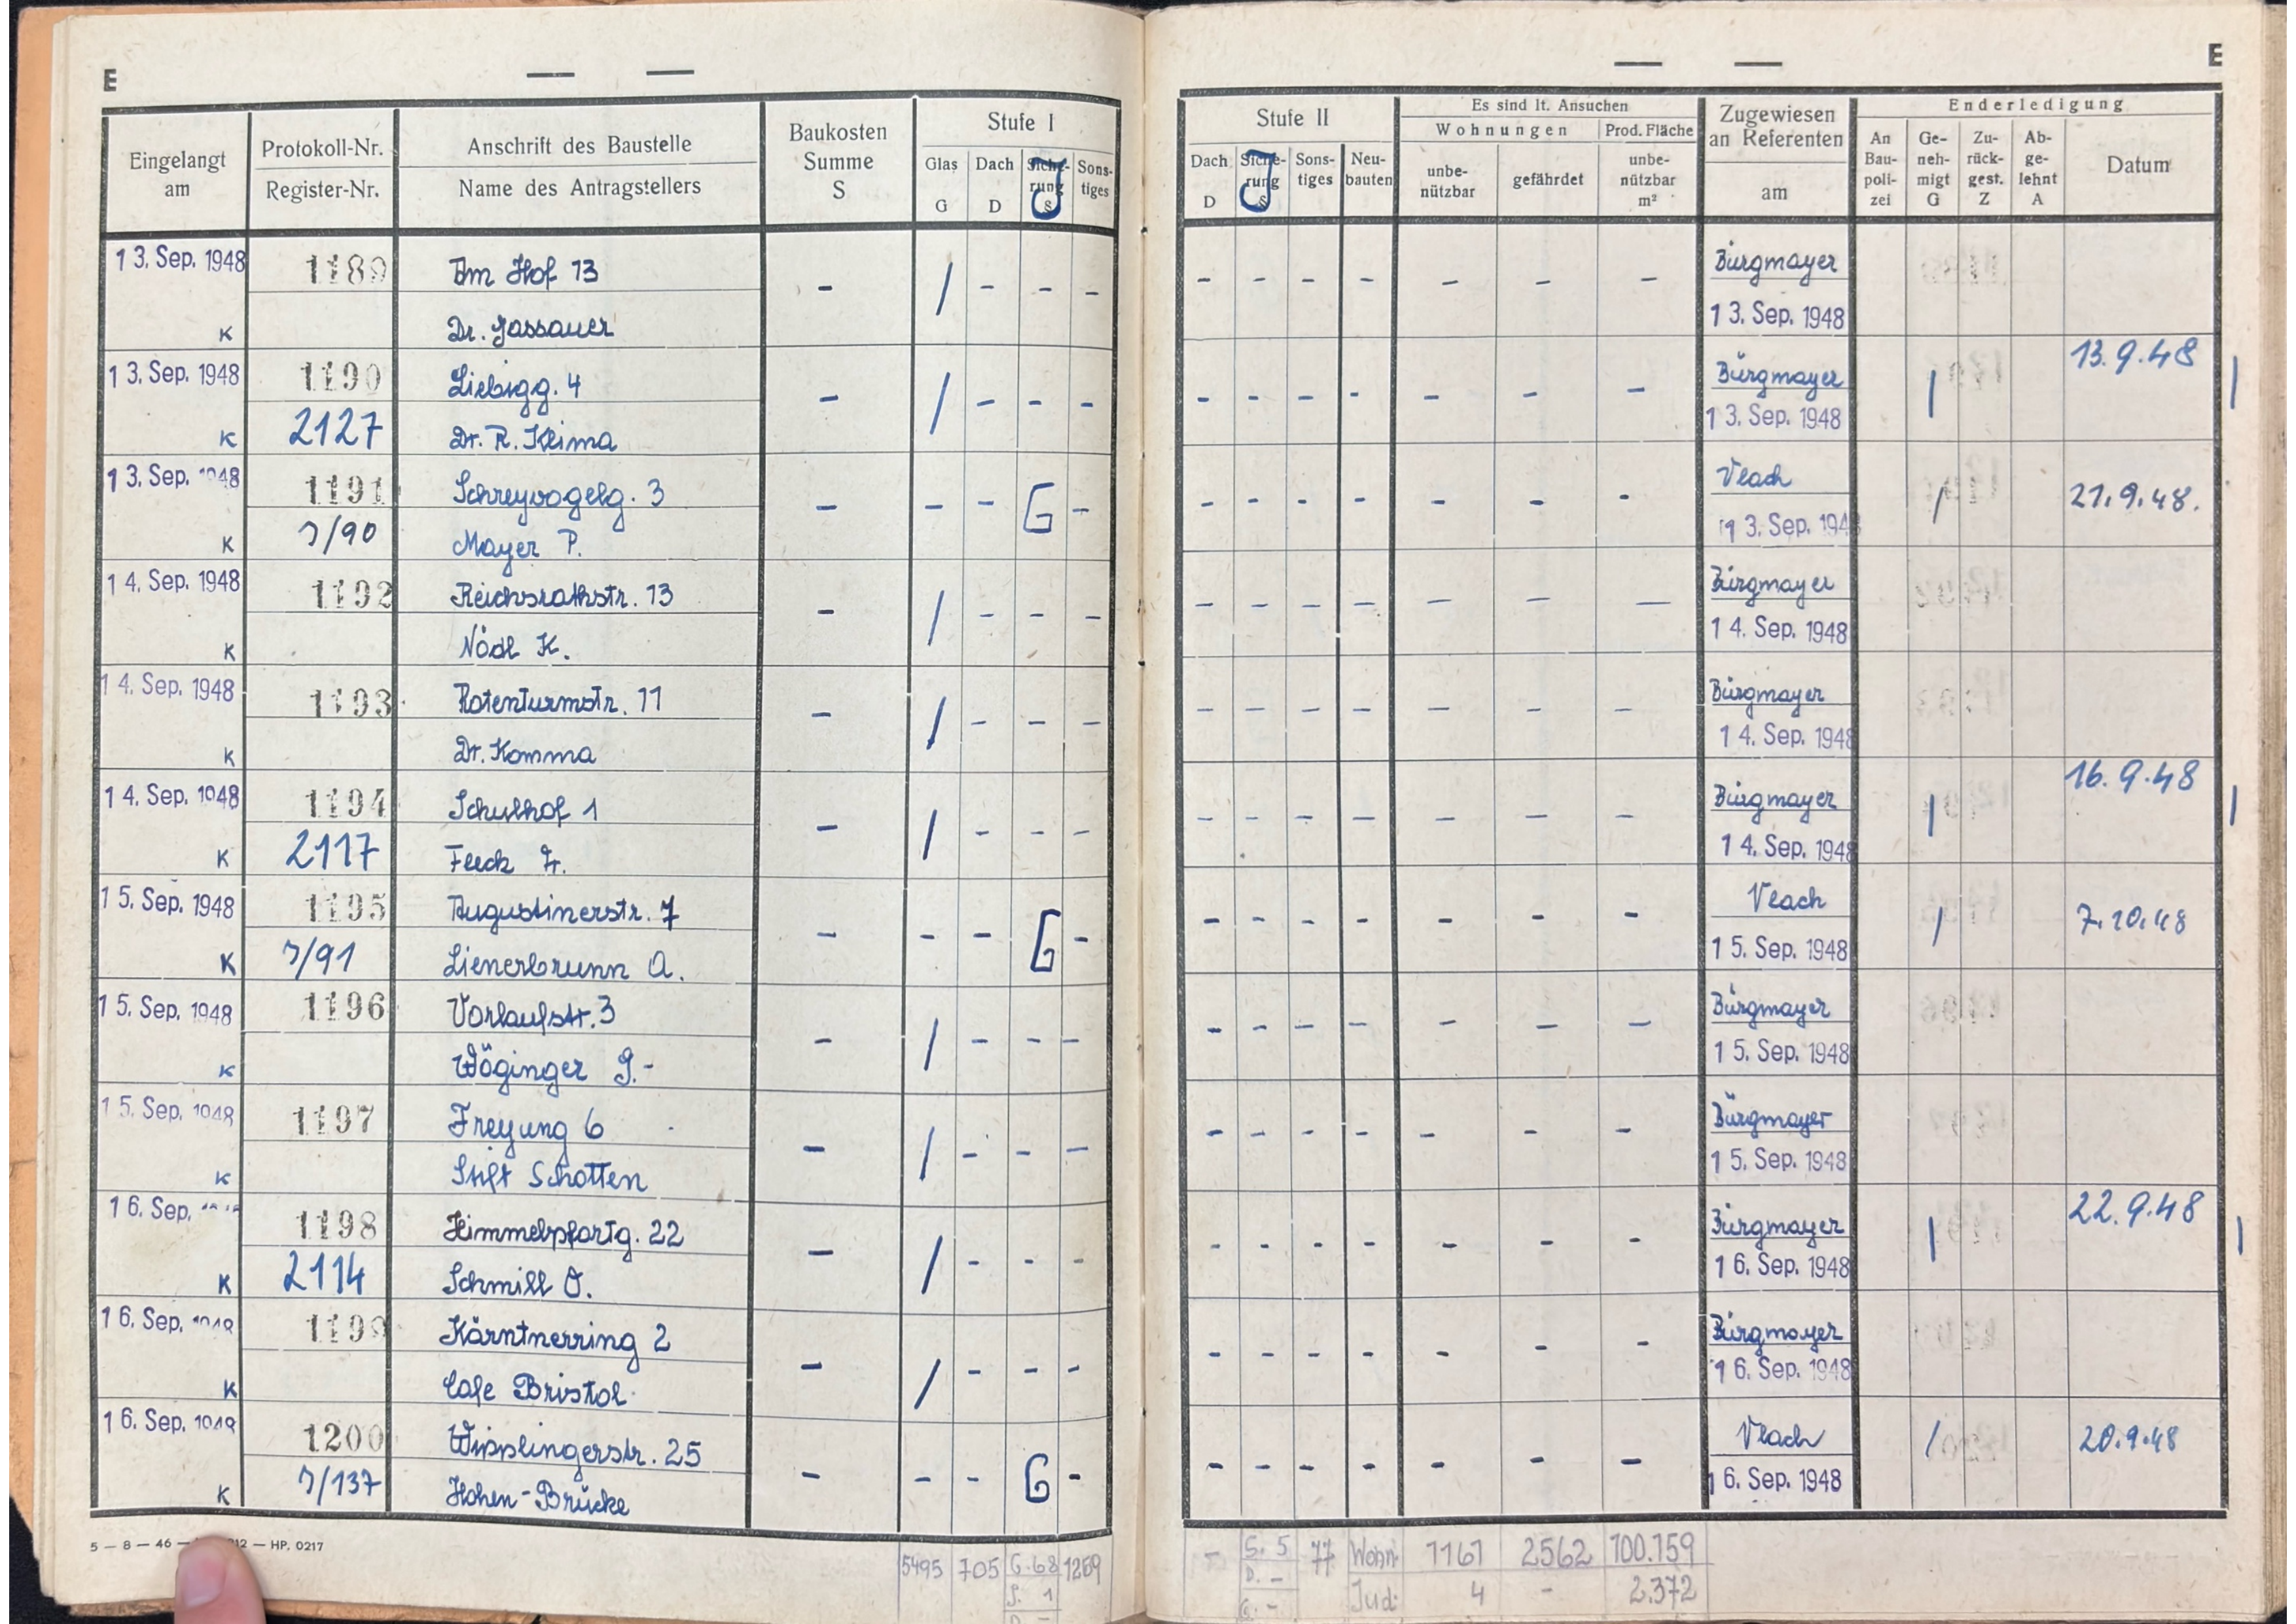 E
Eingelangt am
Protokoll-Nr.
Register-Nr.
Anschrift des Baustelle
Name des Antragstellers
Baukosten Summe S
Stufe I
Glas G
Dach D
J
Sons-
tiges
13. Sep. 1948 1189 Am Hof 13 - / - - -
K Dr. Gassauer
13. Sep. 1948 1190 Liebigg. 4 - / - - -
K 2127 Dr. R. Klima
13. Sep. 1948 1191 Schreyvogelg. 3 - - - G -
K J/90 Mayer P.
14. Sep. 1948 1192 Reichsrathstr. 13 - / - - -
K Nödl K.
14. Sep. 1948 1193 Rotenturmstr. 11 - / - - -
K Dr. Komma
14. Sep. 1948 1194 Schulhof 1 - / - - -
K 2117
15. Sep. 1948 1195 Augustinerstr. 7 - - - G -
K J/91 Lienerbrunn A.
15. Sep. 1948 1196 Vorlaufstr. 3 - / - - -
K Wöginger J.-
15. Sep. 1948 1197 Freyung 6 - / - - -
K Stift Schotten
16. Sep. 1198 Himmelpfortg. 22 - / - - -
K 2114 Schmill O.
16. Sep. 1948 1199 Kärntnerring 2 - / - - -
K Cafe Bristol
16. Sep. 1948 1200 Wipplingerstr. 25 - - - G -
K J/137 Hohen-Brücke
5 — 8 — 46 — 12 — HP. 0217
5495 705 G. 68 1269
E
Stufe II
Dach D
J
Sons-
tiges
Neu-
bauten
Es sind lt. Ansuchen
Wohnungen
unbe-
nützbar
gefährdet
Prod. Fläche
unbe-
nützbar
m²
Zugewiesen
an Referenten
am
Enderledigung
An
Bau-
poli-
zei
Ge-
neh-
migt
G
Zu-
rück-
gest.
Z
Ab-
ge-
lehnt
A
Datum
- - - - - - - Bürgmayer
13. Sep. 1948
- - - - - - - Bürgmayer / 13.9.48 /
13. Sep. 1948
- - - - - - - Vlach / 21.9.48.
13. Sep. 194
- - - - - - - Bürgmayer
14. Sep. 1948
- - - - - - - Bürgmayer
14. Sep. 1948
- - - - - - - Bürgmayer / 16.9.48 /
14. Sep. 1948
- - - - - - - Vlach / 7.10.48
15. Sep. 1948
- - - - - - - Bürgmayer
15. Sep. 1948
- - - - - - - Bürgmayer
15. Sep. 1948
- - - - - - - Bürgmayer / 22.9.48 /
16. Sep. 1948
- - - - - - - Bürgmayer
16. Sep. 1948
- - - - - - - Vlach / 20.9.48
16. Sep. 1948
- S. 5 77 Wohn. 1161 2562 100.159
D. - Jud. 4 - 2.372
G. -